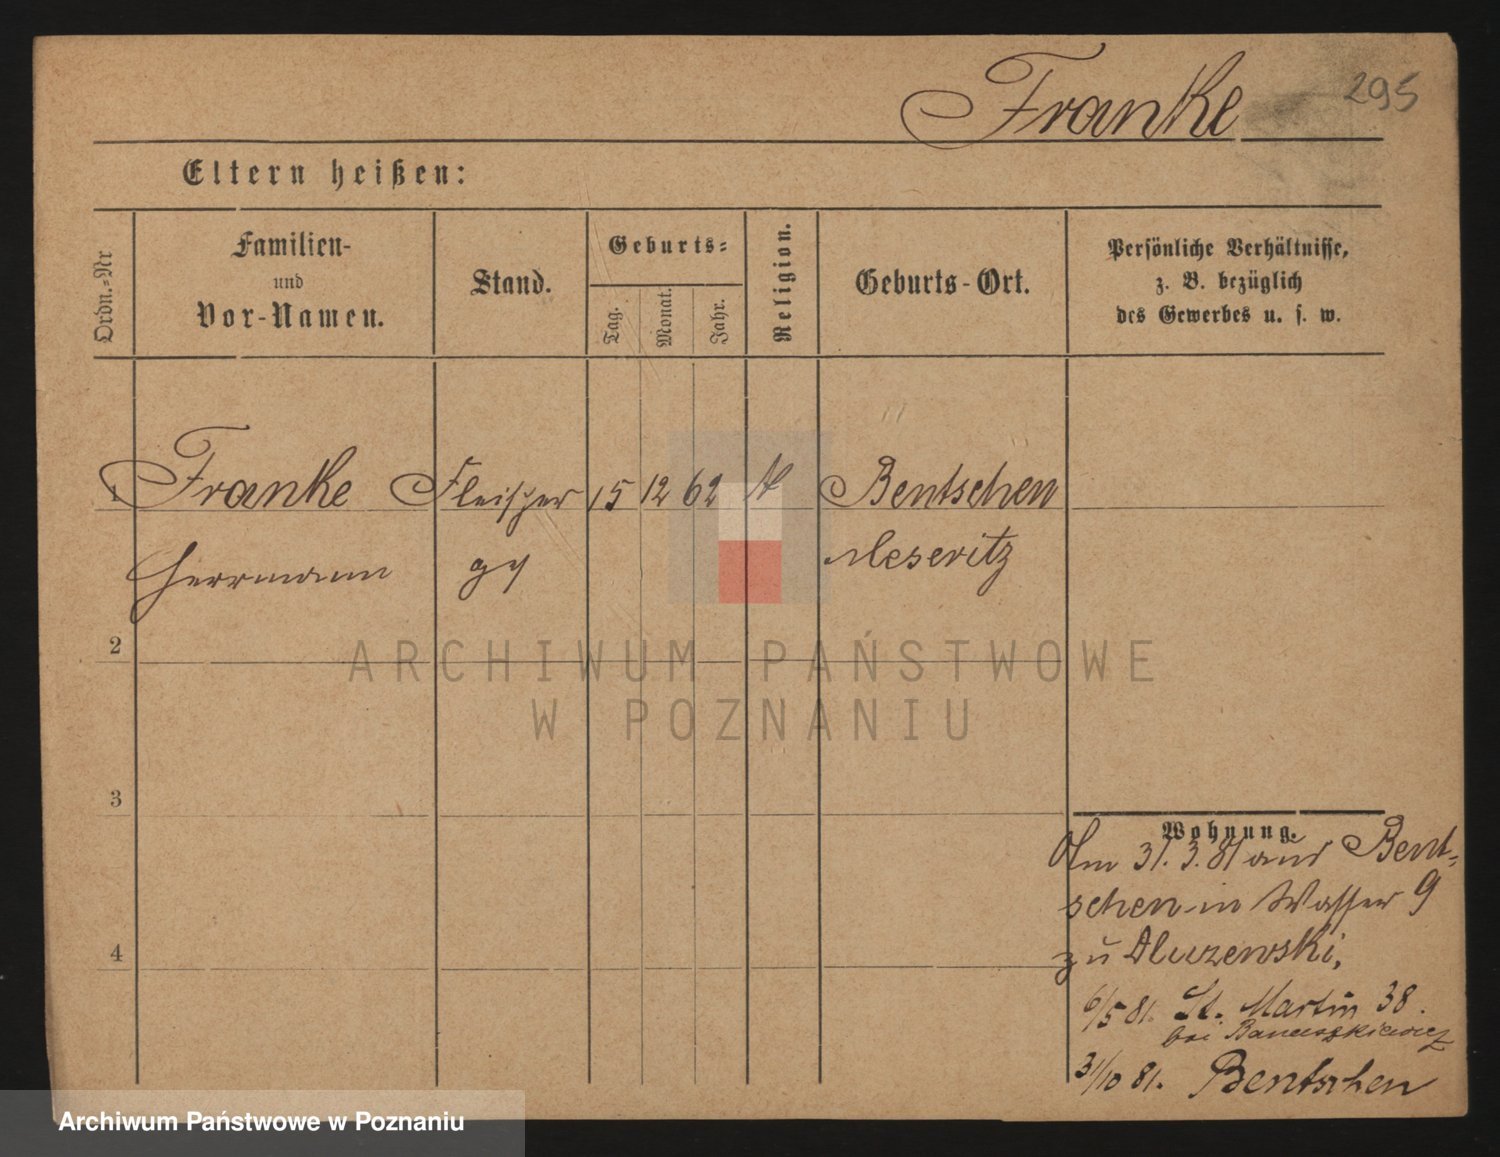 Franke 295
Eltern heißen:
Ordn.=Nr
Familien-
und
Vor-Namen.
Stand.
Geburts=
Tag.
Monat.
Jahr.
Religion.
Geburts-Ort.
Persönliche Verhältnisse,
z. B. bezüglich
des Gewerbes u. s. w.
1 Franke Fleischer 15 12 62 Bentschen
Herrmann Meseritz
2
ARCHIWUM PAŃSTWOWE
W POZNANIU
3
Wohnung.
Am 31. 3. 81 aus Bent=
schen in Wasser 9
zu
4
6/5 81. St. Martin 38.
bei
31/10 81. Bentschen
Archiwum Państwowe w Poznaniu